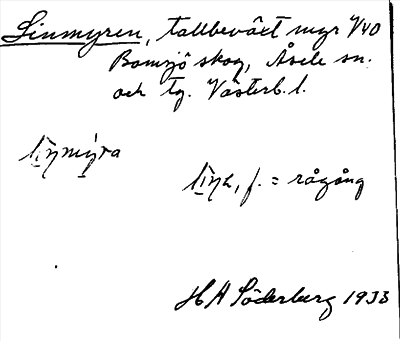 Linmyren, tallbeväxt myr V40
Bomsjö skog, Åsele sn.
och tg. Västerb. l.
li̠nmy̠ra
li̠na, f. = rågång
H A Söderberg 1933